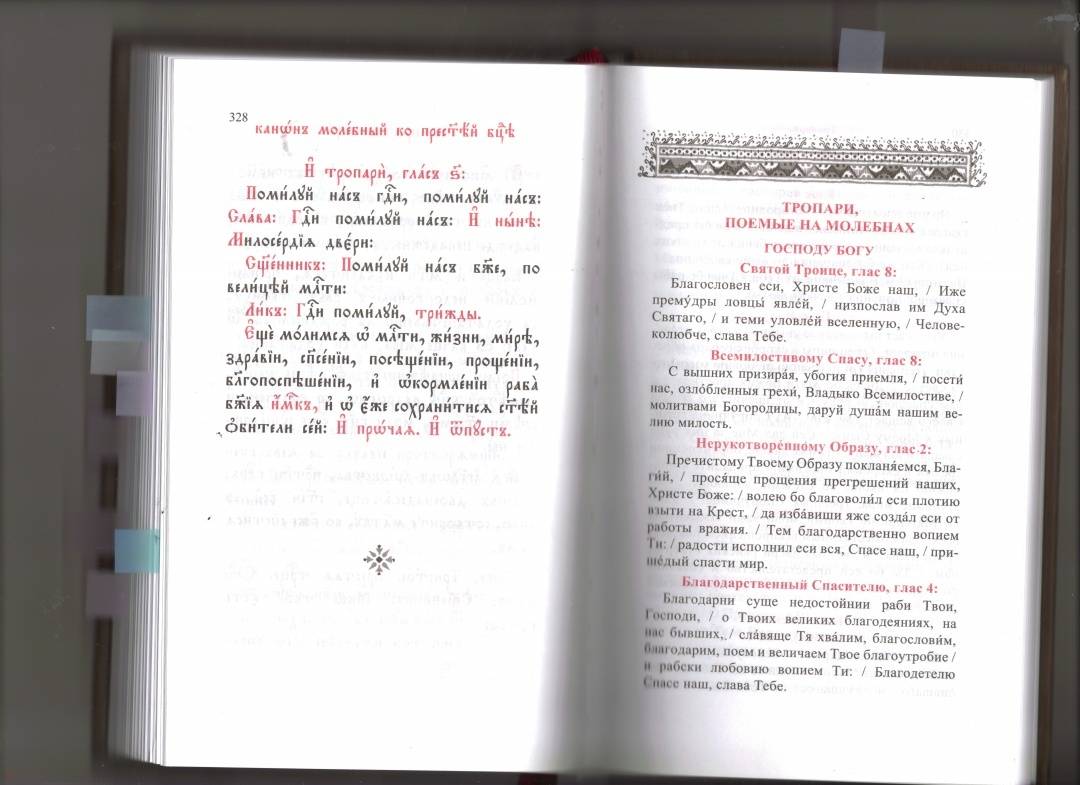 328
канѡ́нъ моле́бный ко прест҃ѣ́й бц҃ѣ
И҆ тропарѝ, гла́съ ѕ҃:
Поми́лꙋй на́съ гдⷭ҇и, поми́лꙋй на́съ:
Сла́ва: Гдⷭ҇и поми́лꙋй на́съ: И҆ ны́нѣ:
Милосе́рдїѧ две́ри:
Сщ҃е́нникъ: Поми́лꙋй на́съ бж҃е, по
вели́цѣй млⷭ҇ти:
Ли́къ: Гдⷭ҇и поми́лꙋй, три́жды.
Е҆щѐ мо́лимсѧ ѡ҆ млⷭ҇ти, жи́зни, ми́рѣ,
здра́вїи, сп҃се́нїи, посѣще́нїи, проще́нїи,
бл҃гопоспѣше́нїи, и҆ ѡ҆кормле́нїи раба̀
бж҃їѧ и҆́мⷬ҇къ, и҆ ѡ҆ є҆́же сохрани́тисѧ ст҃ѣ́й
ѻ҆би́тели се́й: И҆ прѡ́чаѧ. И҆ ѿпꙋ́стъ.
ТРОПАРИ,
ПОЕМЫЕ НА МОЛЕБНАХ
ГОСПОДУ БОГУ
Святой Троице, глас 8:
Благословен еси, Христе Боже наш, / Иже
прему́дры ловцы́ явле́й, / низпослав им Духа
Святаго, / и теми уловле́й вселенную, / Челове-
колюбче, слава Тебе.
Всемилостивому Спасу, глас 8:
С вышних призира́я, убогия приемля, / посети́
нас, озло́бленныя грехи́, Владыко Всемилостиве, /
молитвами Богородицы, даруй душа́м нашим ве-
лию милость.
Нерукотворе́нному Образу, глас 2:
Пречистому Твоему Образу покланя́емся, Бла-
ги́й, / прося́ще прощения прегрешений наших,
Христе Боже: / волею бо благоволи́л еси плотию
взыти на Крест, / да изба́виши яже созда́л еси от
работы вражия. / Тем благодарственно вопием
Ти: / радости исполнил еси вся, Спасе наш, / при-
ше́дый спасти мир.
Благодарственный Спасителю, глас 4:
Благодарни суще недостойнии раби Твои,
Господи, / о Твоих великих благодеяниях, на
нас бывших, / сла́вяще Тя хва́лим, благослови́м,
благодарим, поем и величаем Твое благоутробие /
и рабски любовию вопием Ти: / Благодетелю
Спасе наш, слава Тебе.